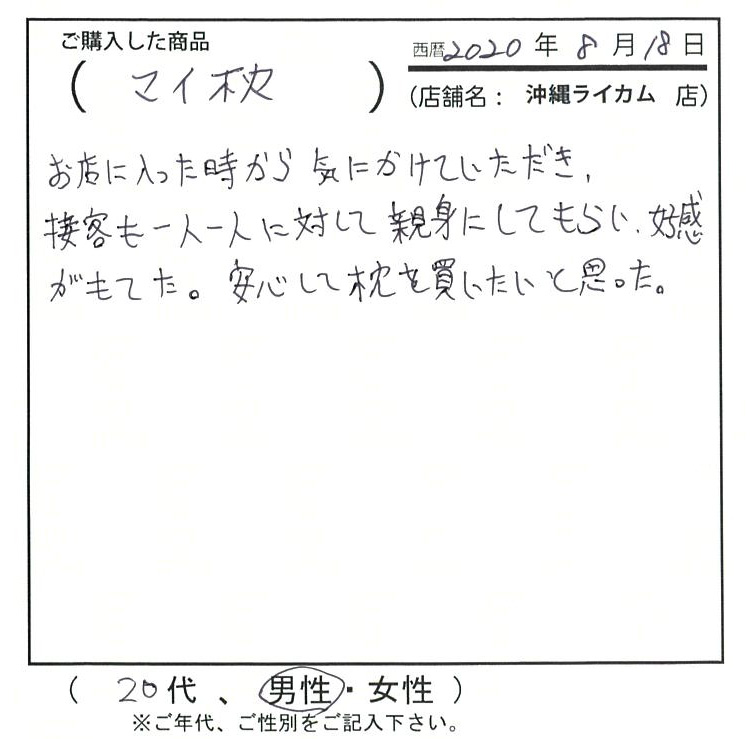 ご購入した商品
西暦2020年8月18日
(マイ枕)
(店舗名：沖縄ライカム 店)
お店に入った時から気にかけていただき、
接客も一人一人に対して親身にしてもらい、好感
がもてた。安心して枕を買いたいと思った。
(20代、男性・女性)
※ご年代、ご性別をご記入下さい。